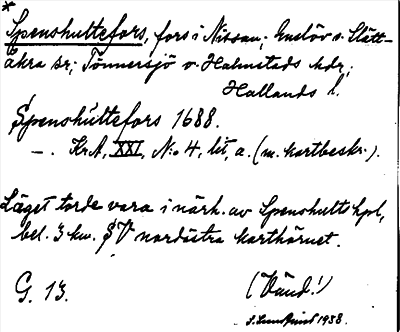 *
Spenshultefors, fors i Nissan; Enslöv o. Slätt-
åkra sr; Tönnersjö o. Halmstads hdr,
Hallands l.
Spenshúltefors 1688.
—. Kr.A, XXI, N:o 4, lit, a. (m. kartbeskr.).
Läget torde vara i närh. av Spenshults hpl,
bel. 3 km. SV nordöstra karthörnet.
G. 13.
(Vänd!)
Lundquist 1938.